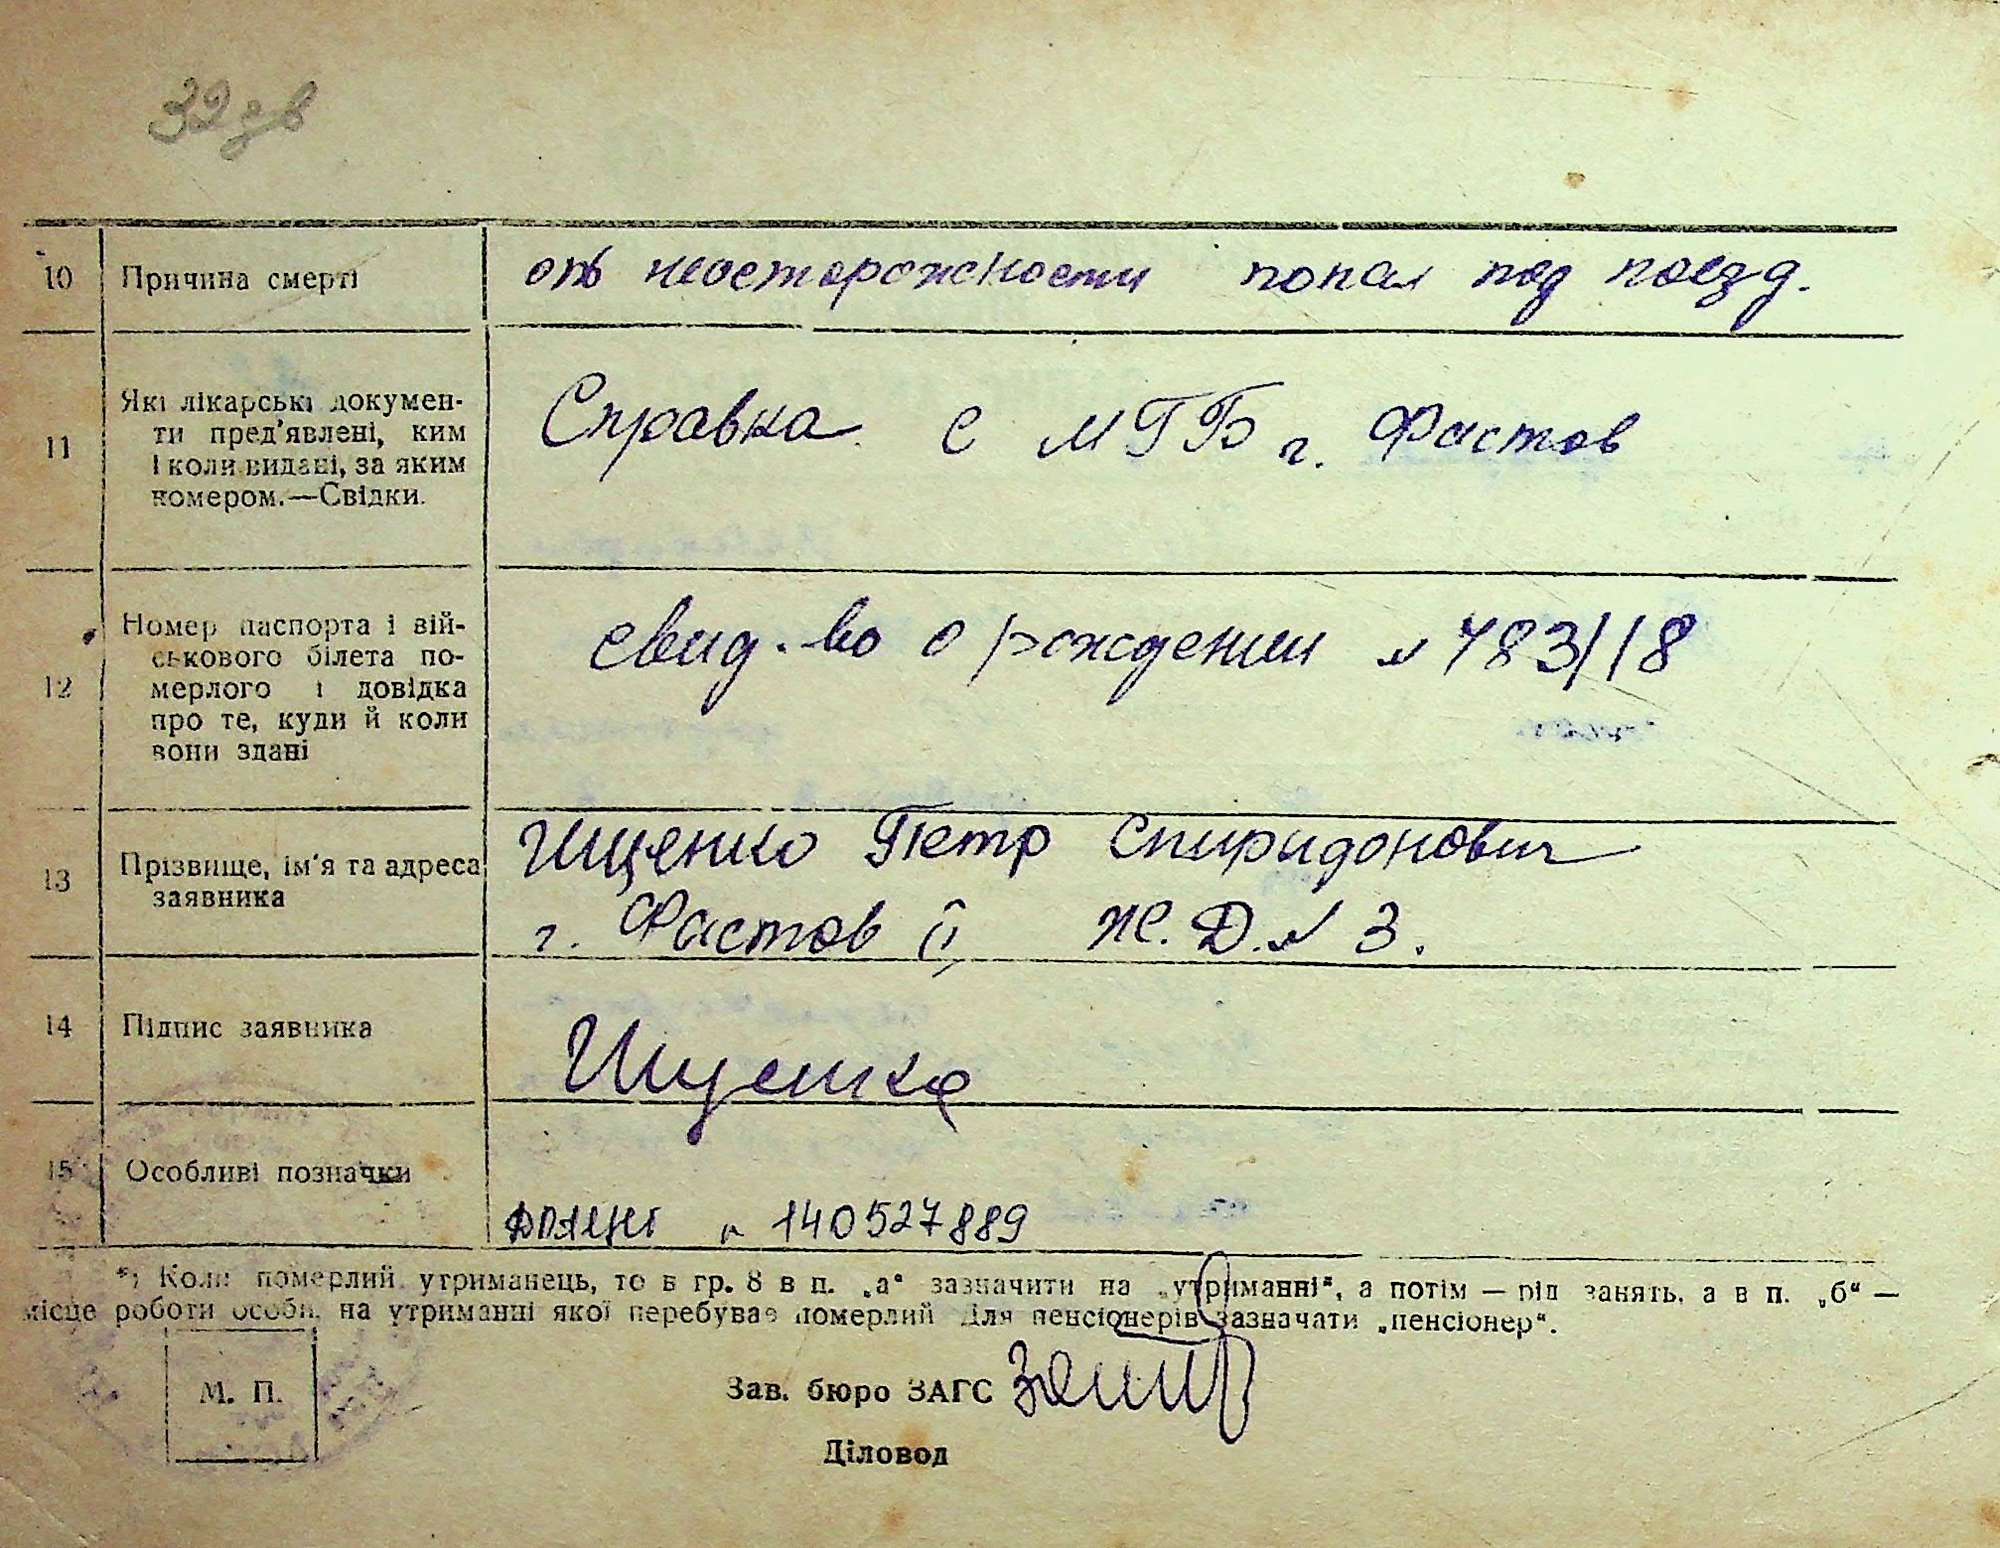 32
10 Причина смерті от неосторожности попал под поезд.
11 Які лікарські докумен-
ти пред'явлені, ким
і коли видані, за яким
номером.—Свідки.
Справка с МГБ г. Фастов
12 Номер паспорта і вій-
ськового білета по-
мерлого і довідка
про те, куди й коли
вони здані
свид.-во о рождении № 783/18
13 Прізвище, ім'я та адреса
заявника
Ищенко Петр Спиридонович
г. Фастов II, Ж.Д. № 3.
14 Підпис заявника Ищенко
15 Особливі позначки
ДРАЦНГ № 140527889
*) Коли померлий утриманець, то в гр. 8 в п. „а“ зазначити на „утриманні“, а потім — рід занять, а в п. „б“ —
місце роботи особи, на утриманні якої перебував померлий Для пенсіонерів зазначати „пенсіонер“.
М. П.
Зав. бюро ЗАГС
Діловод